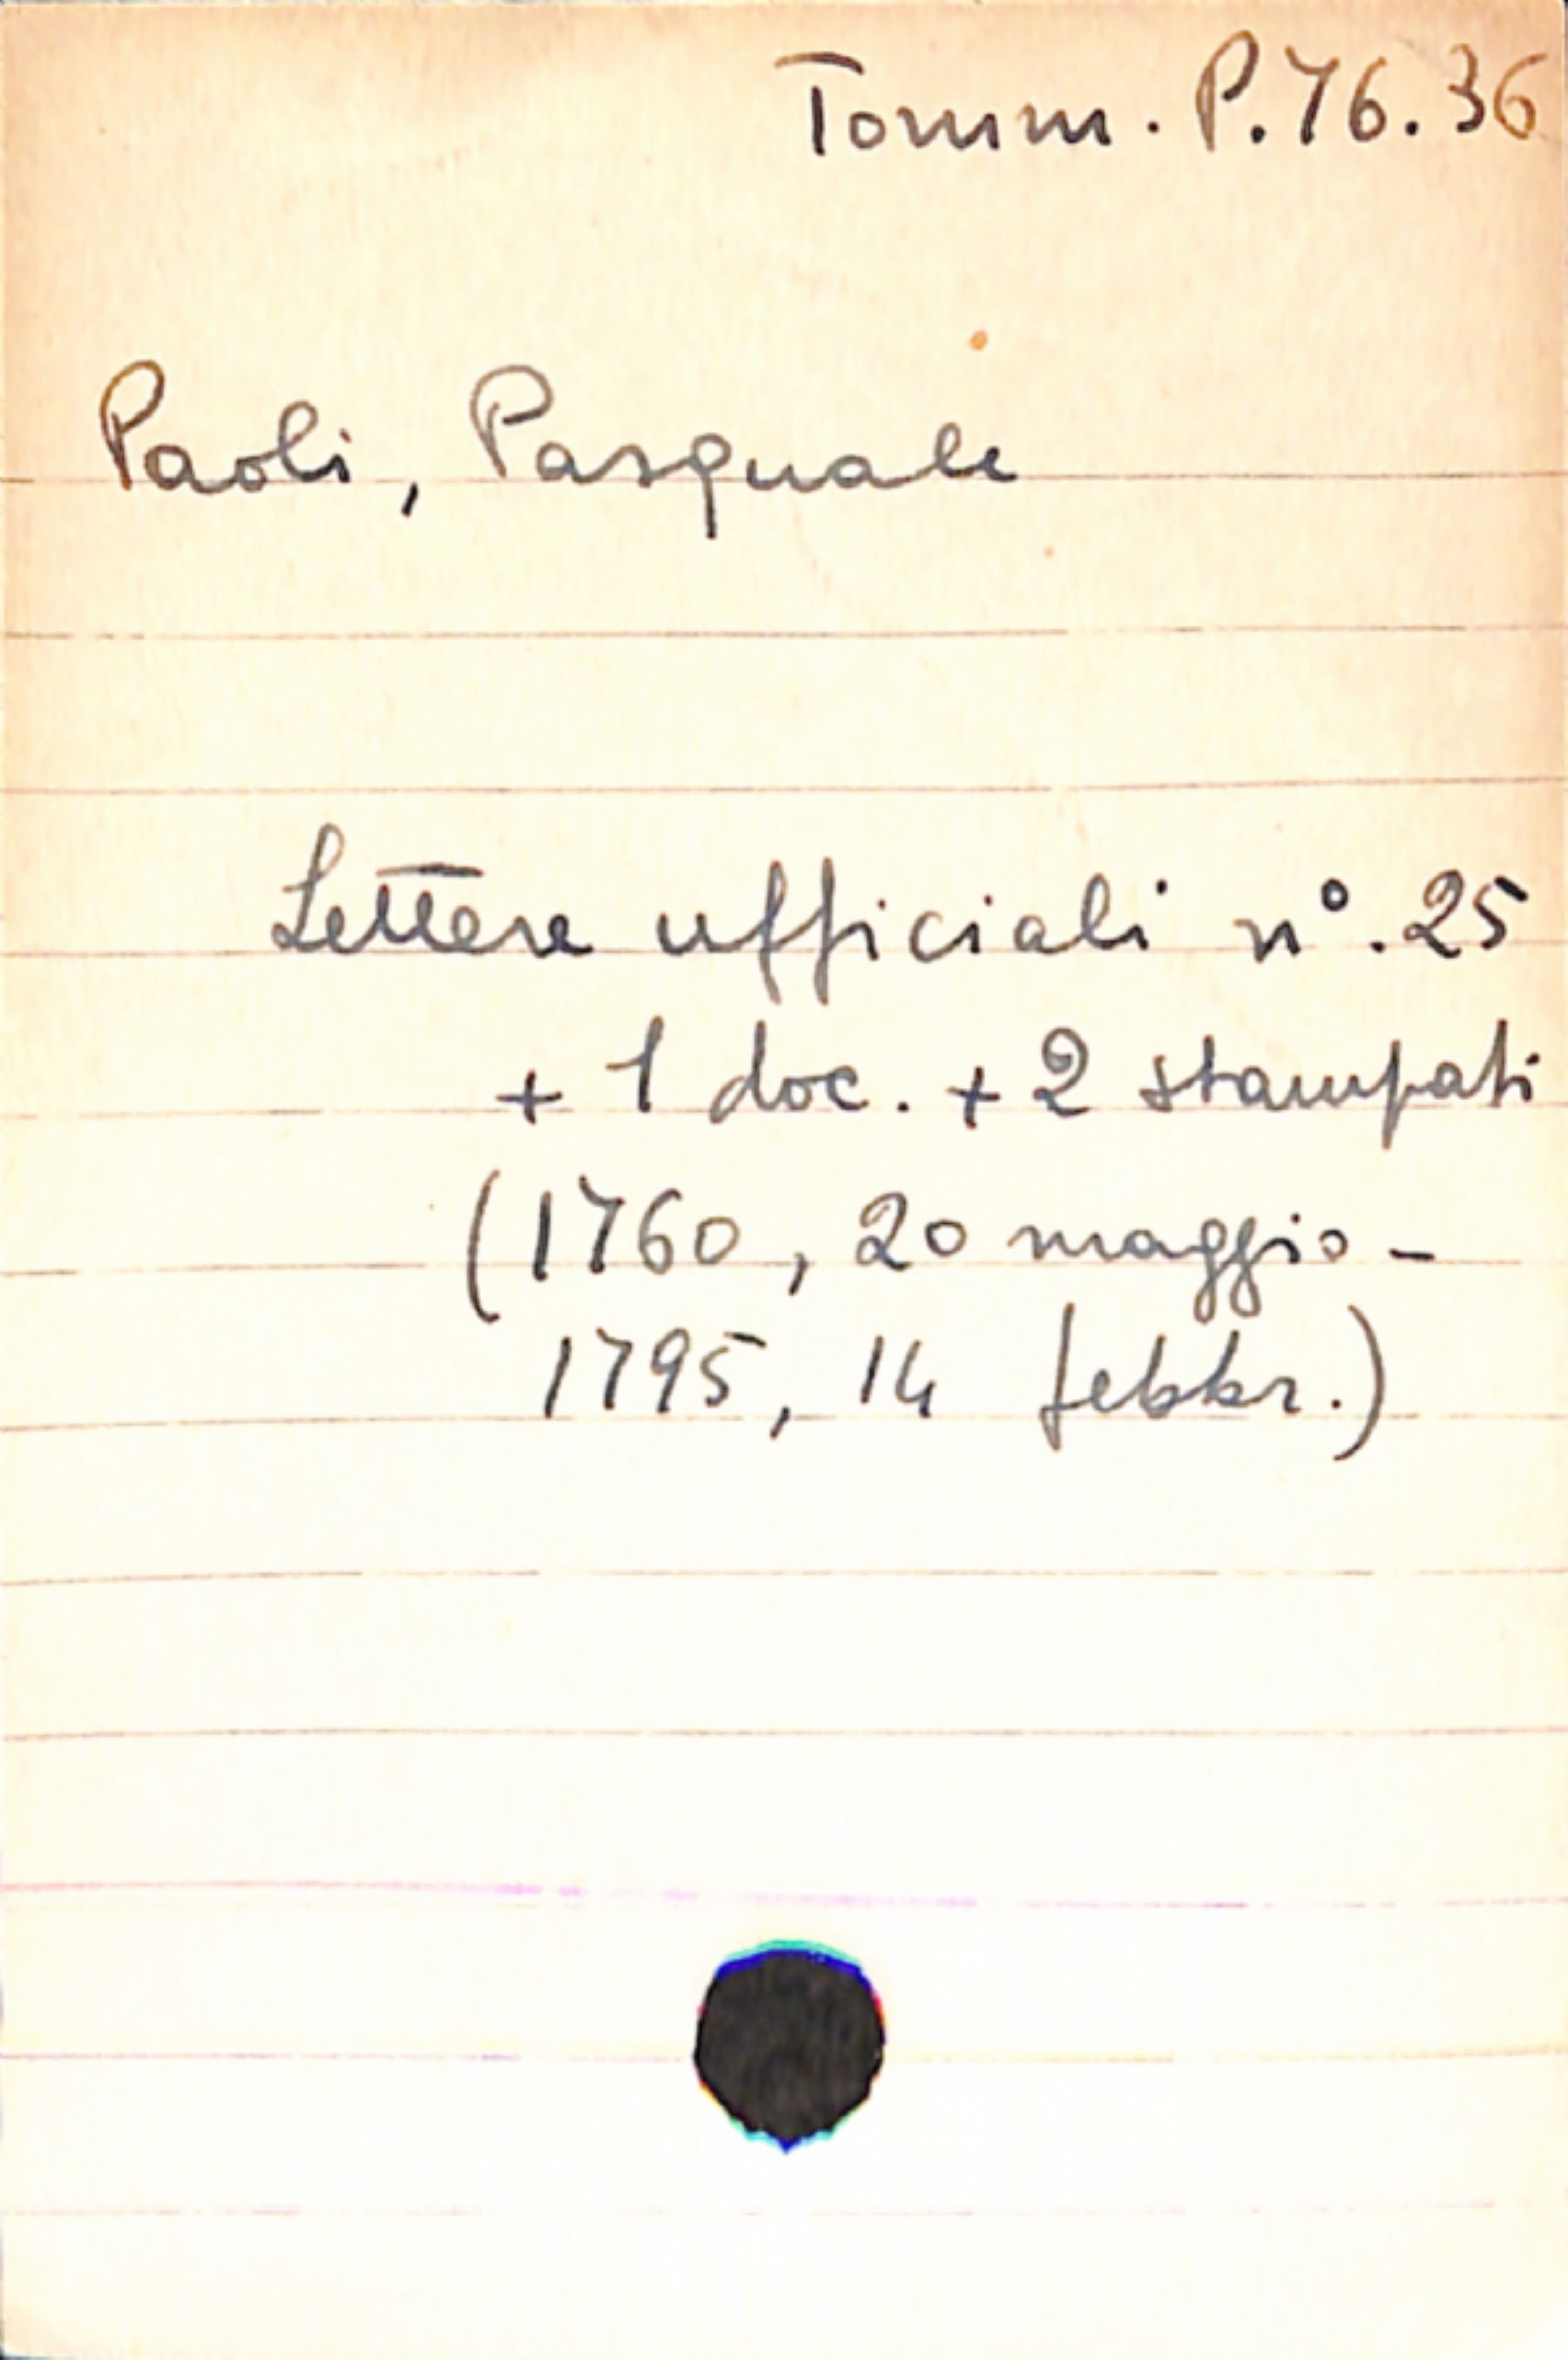 Tomm. P.76.36
Paoli, Pasquale
Lettere ufficiali n°. 25
+ 1 doc. + 2 stampati
(1760, 20 maggio -
1795, 14 febbr.)